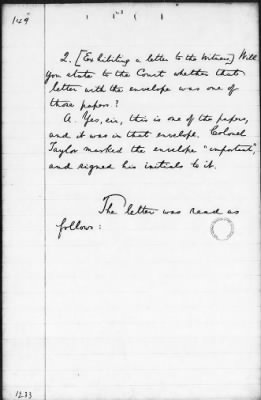 149
2. [Exhibiting a letter to the Witness] Will
you state to the Court whether that
letter with the envelope was one of
those papers?
A. Yes, sir, this is one of the papers,
and it was in that envelope. Colonel
Taylor marked the envelope "important",
and signed his initials to it.
The letter was read as
follows:
1233